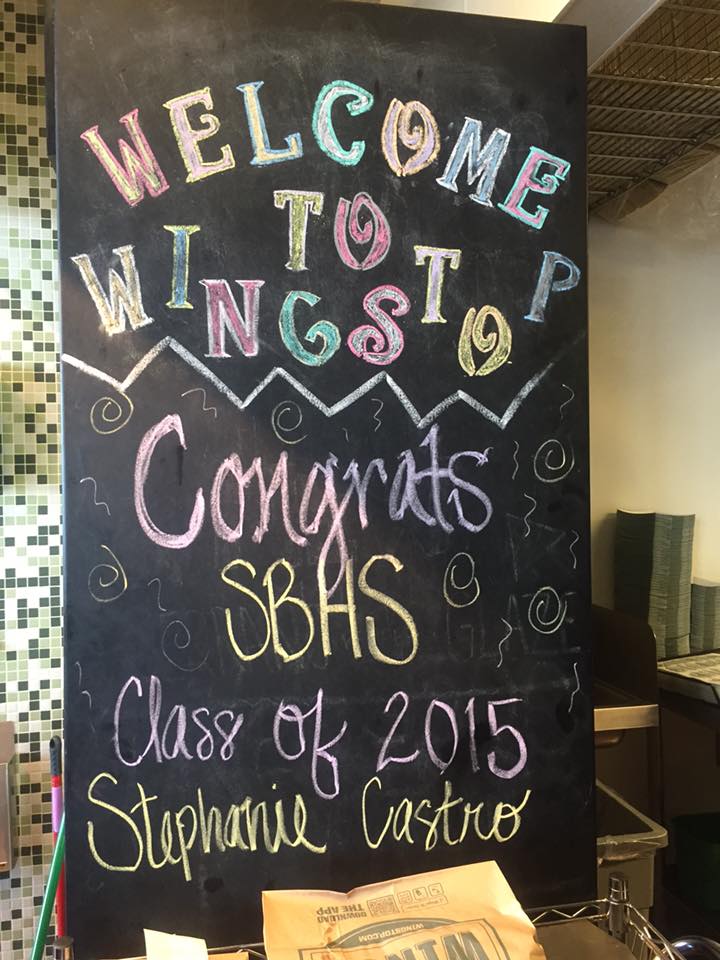 WELCOME
TO
WINGSTOP
Congrats
SBHS
Class of 2015
Stephanie Castro
DOWNLOAD
THE APP
WINGSTOP.COM